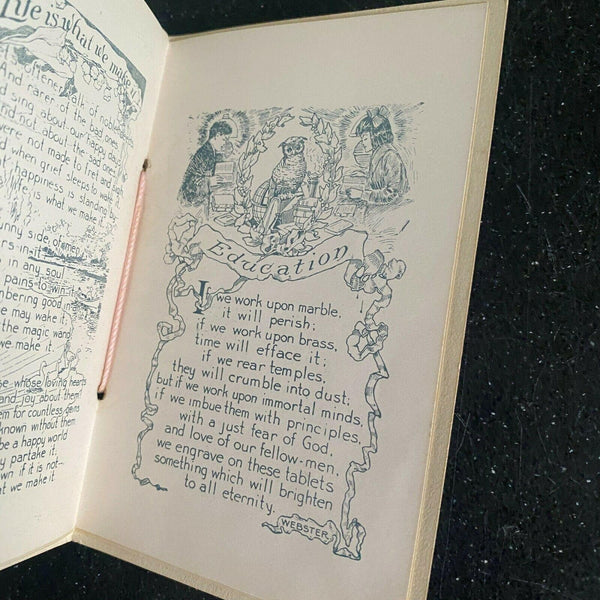 Life is what we make it
oftener, all of noble
And rarer of the bad ones
sing about our happy days
and not about the sad ones
were not made to fret and sigh
when grief sleeps to wake
happiness is standing by
life is what we make it
sunny side, of men
in it
in any soul
pains to win
slumbering good in
we may wake it
the magic wand
we make it.
whose loving hearts
and joy about them
them for countless gains
known without them
be a happy world
may partake it,
own if it is not-
what we make it
Education
If we work upon marble,
it will perish;
if we work upon brass,
time will efface it;
if we rear temples,
they will crumble into dust;
but if we work upon immortal minds,
if we imbue them with principles,
with a just fear of God,
and love of our fellow-men,
we engrave on these tablets
something which will brighten
to all eternity.
WEBSTER